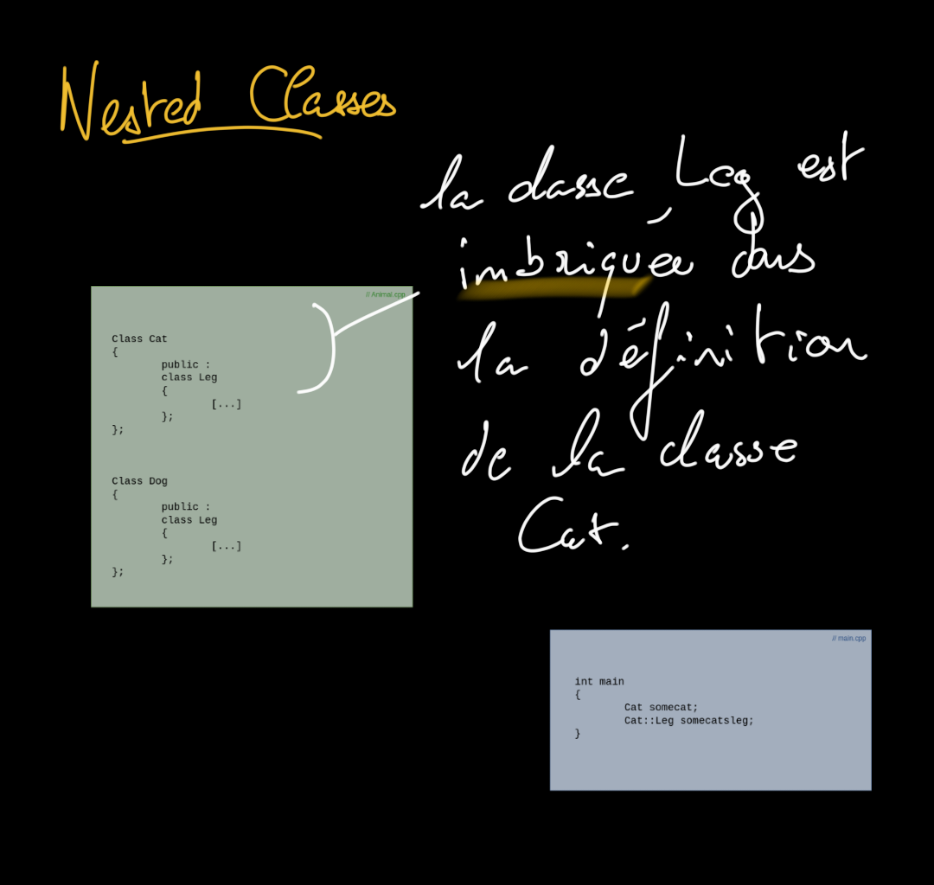 Nested Classes
la classe Leg est
imbriquée dans
la définition
de la classe
Cat.
// Animal.cpp
Class Cat
{
public :
class Leg
{
[...]
};
};
Class Dog
{
public :
class Leg
{
[...]
};
};
// main.cpp
int main
{
Cat somecat;
Cat::Leg somecatsleg;
}